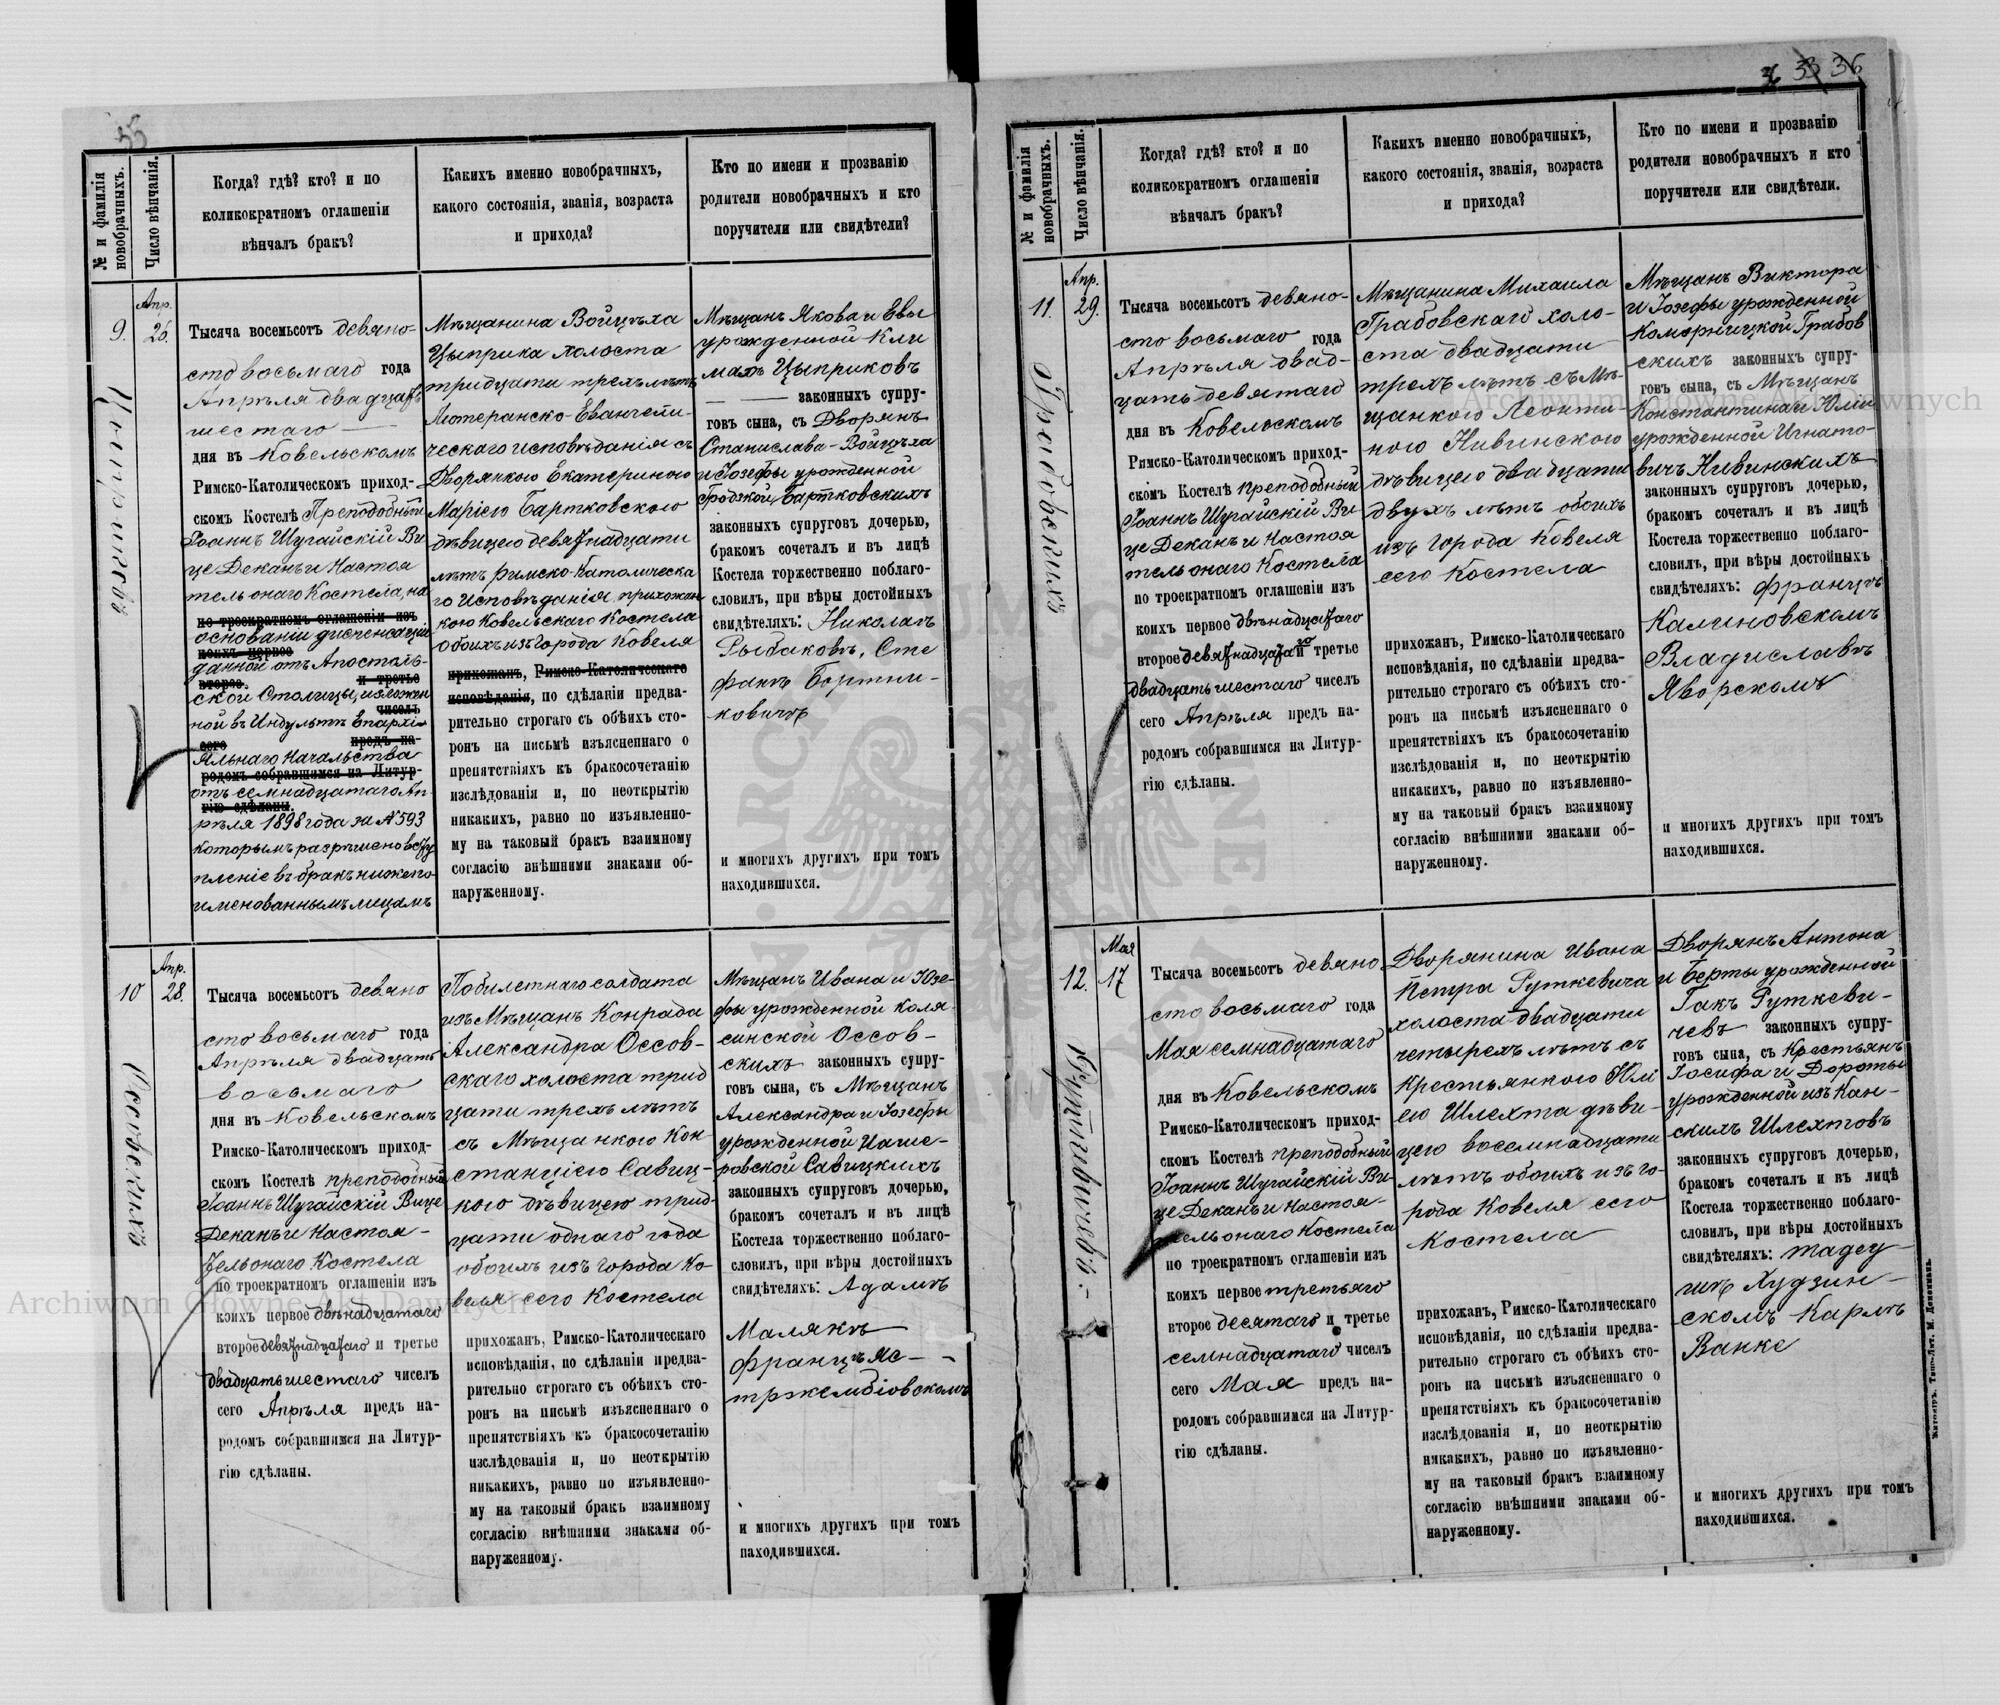 35
№ и фамилія новобрачныхъ.
Число вѣнчанія.
Когда? гдѣ? кто? и по
коликократномъ оглашеніи
вѣнчалъ бракъ?
Какихъ именно новобрачныхъ,
какого состоянія, званія, возраста
и прихода?
Кто по имени и прозванію
родители новобрачныхъ и кто
поручители или свидѣтели?
9.
Цыприковъ
Апр.
26.
Тысяча восемьсотъ девяно-
сто восьмаго года
Апрѣля двадцать
шестаго
дня въ Ковельскомъ
Римско-Католическомъ приход-
скомъ Костелѣ Преподобный
Іоаннъ Шугайскій Ви
це Деканъ и Настоя
тель онаго Костела, на
по троекратномъ оглашеніи изъ
основаніи диспенсаціи
коихъ первое
данной отъ Апостоль-
второе и третье
ской Столицы, изложен
чиселъ
ной въ Индультѣ Епархі-
сего предъ на-
яльнаго Начальства
родомъ собравшимся на Литур-
отъ семнадцатаго Ап-
гію сдѣланы.
рѣля 1898 года за № 593
которымъ разрѣшено всту
пленіе въ бракъ нижепо
именованнымъ лицамъ
Мѣщанина Войцѣха
Цыприка холоста
тридцати трехъ лѣтъ
Лютеранско-Евангели-
ческаго исповѣданія съ
Дворянкою Екатериною
Маріею Бартковскою
дѣвицею девятнадцати
лѣтъ римско-католическа
го Исповѣданія, прихожан
кою Ковельскаго Костела
обоихъ изъ города Ковеля
прихожанъ, Римско-Католическаго
исповѣданія, по сдѣланіи предва-
рительно строгаго съ обѣихъ сто-
ронъ на письмѣ изъясненнаго о
препятствіяхъ къ бракосочетанію
изслѣдованія и, по неоткрытію
никакихъ, равно по изъявленно-
му на таковый бракъ взаимному
согласію внѣшними знаками об-
наруженному.
Мѣщанъ Якова и Евы
урожденной Кли
махъ Цыприковъ
законныхъ супру-
говъ сына, съ Дворянъ
Станислава-Войцѣха
и Іозефы урожденной
Гродзкой Бартковскихъ
законныхъ супруговъ дочерью,
бракомъ сочеталъ и въ лицѣ
Костела торжественно поблаго-
словилъ, при вѣры достойныхъ
свидѣтеляхъ: Николаѣ
Рыбаковѣ, Сте
фанѣ Бортни-
ковичѣ
и многихъ другихъ при томъ
находившихся.
10
Оссовскихъ
Апр.
28.
Тысяча восемьсотъ девяно
сто восьмаго года
Апрѣля двадцать
восьмаго
дня въ Ковельскомъ
Римско-Католическомъ приход-
скомъ Костелѣ преподобный
Іоаннъ Шугайскій Вице
Деканъ и Настоя-
тель онаго Костела
по троекратномъ оглашеніи изъ
коихъ первое двѣнадцатаго
второе девятнадцатаго и третье
двадцать шестаго чиселъ
сего Апрѣля предъ на-
родомъ собравшимся на Литур-
гію сдѣланы.
Побилетнаго солдата
изъ Мѣщанъ Конрада
Александра Оссов-
скаго холоста трид
цати трехъ лѣтъ
съ Мѣщанкою Кон
станціею Савиц-
кою дѣвицею трид
цати одного года
обоихъ изъ города Ко
веля сего Костела
прихожанъ, Римско-Католическаго
исповѣданія, по сдѣланіи предва-
рительно строгаго съ обѣихъ сто-
ронъ на письмѣ изъясненнаго о
препятствіяхъ къ бракосочетанію
изслѣдованія и, по неоткрытію
никакихъ, равно по изъявленно-
му на таковый бракъ взаимному
согласію внѣшними знаками об-
наруженному.
Мѣщанъ Ивана и Юзе-
фы урожденной Коля
синской Оссов-
скихъ законныхъ супру-
говъ сына, съ Мѣщанъ
Александра и Іозефы
урожденной
Савицкихъ
законныхъ супруговъ дочерью,
бракомъ сочеталъ и въ лицѣ
Костела торжественно поблаго-
словилъ, при вѣры достойныхъ
свидѣтеляхъ: Адамѣ
Малякѣ
францѣ Яс-
тржембіовскомъ
и многихъ другихъ при томъ
находившихся.
36 33 36
№ и фамилія новобрачныхъ.
Число вѣнчанія.
Когда? гдѣ? кто? и по
коликократномъ оглашеніи
вѣнчалъ бракъ?
Какихъ именно новобрачныхъ,
какого состоянія, званія, возраста
и прихода?
Кто по имени и прозванію
родители новобрачныхъ и кто
поручители или свидѣтели.
11.
Грабовскихъ
Апр.
29.
Тысяча восемьсотъ девяно-
сто восьмаго года
Апрѣля двад-
цать девятаго
дня въ Ковельскомъ
Римско-Католическомъ приход-
скомъ Костелѣ преподобный
Іоаннъ Шугайскій Ви-
це Деканъ и Настоя
тель онаго Костела
по троекратномъ оглашеніи изъ
коихъ первое двѣнадцатаго
второе девятнадцатаго и третье
двадцать шестаго чиселъ
сего Апрѣля предъ на-
родомъ собравшимся на Литур-
гію сдѣланы.
Мѣщанина Михаила
Грабовскаго холо-
ста двадцати
трехъ лѣтъ съ Мѣ-
щанкою Леонти-
ною Нивинскою
дѣвицею двадцати
двухъ лѣтъ обоихъ
изъ города Ковеля
сего Костела
прихожанъ, Римско-Католическаго
исповѣданія, по сдѣланіи предва-
рительно строгаго съ обѣихъ сто-
ронъ на письмѣ изъясненнаго о
препятствіяхъ къ бракосочетанію
изслѣдованія и, по неоткрытію
никакихъ, равно по изъявленно-
му на таковый бракъ взаимному
согласію внѣшними знаками об-
наруженному.
Мѣщанъ Виктора
и Іозефы урожденной
Коморницкой Грабов
скихъ законныхъ супру-
говъ сына, съ Мѣщанъ
Константина и Юліи
урожденной Игнато-
вичъ Нивинскихъ
законныхъ супруговъ дочерью,
бракомъ сочеталъ и въ лицѣ
Костела торжественно поблаго-
словилъ, при вѣры достойныхъ
свидѣтеляхъ: францѣ
Калиновскомъ
Владиславѣ
Яворскомъ
и многихъ другихъ при томъ
находившихся.
12.
Руткевичевъ
Мая
17
Тысяча восемьсотъ девяно
сто восьмаго года
Мая семнадцатаго
дня въ Ковельскомъ
Римско-Католическомъ приход-
скомъ Костелѣ преподобный
Іоаннъ Шугайскій Ви-
це Деканъ и Настоя-
тель онаго Костела
по троекратномъ оглашеніи изъ
коихъ первое третьяго
второе десятаго и третье
семнадцатаго чиселъ
сего Мая предъ на-
родомъ собравшимся на Литур-
гію сдѣланы.
Дворянина Ивана
Петра Руткевича
холоста двадцати
четырехъ лѣтъ съ
Крестьянкою Юлі
ею Шлехта дѣви-
цею восемнадцати
лѣтъ обоихъ изъ го-
рода Ковеля сего
Костела
прихожанъ, Римско-Католическаго
исповѣданія, по сдѣланіи предва-
рительно строгаго съ обѣихъ сто-
ронъ на письмѣ изъясненнаго о
препятствіяхъ къ бракосочетанію
изслѣдованія и, по неоткрытію
никакихъ, равно по изъявленно-
му на таковый бракъ взаимному
согласію внѣшними знаками об-
наруженному.
Дворянъ Антона
и Берты урожденной
Гакъ Руткеви-
чевъ законныхъ супру-
говъ сына, съ Крестьянъ
Іосифа и Дороты
урожденной изъ Кан-
скихъ Шлехтовъ
законныхъ супруговъ дочерью,
бракомъ сочеталъ и въ лицѣ
Костела торжественно поблаго-
словилъ, при вѣры достойныхъ
свидѣтеляхъ: Тадеу-
шѣ Худзин-
скомъ Карлѣ
Ванке
и многихъ другихъ при томъ
находившихся.
Житоміръ. Типо-Лит. М. Дененмана.
Archiwum Główne Akt Dawnych
Archiwum Główne Akt Dawnych